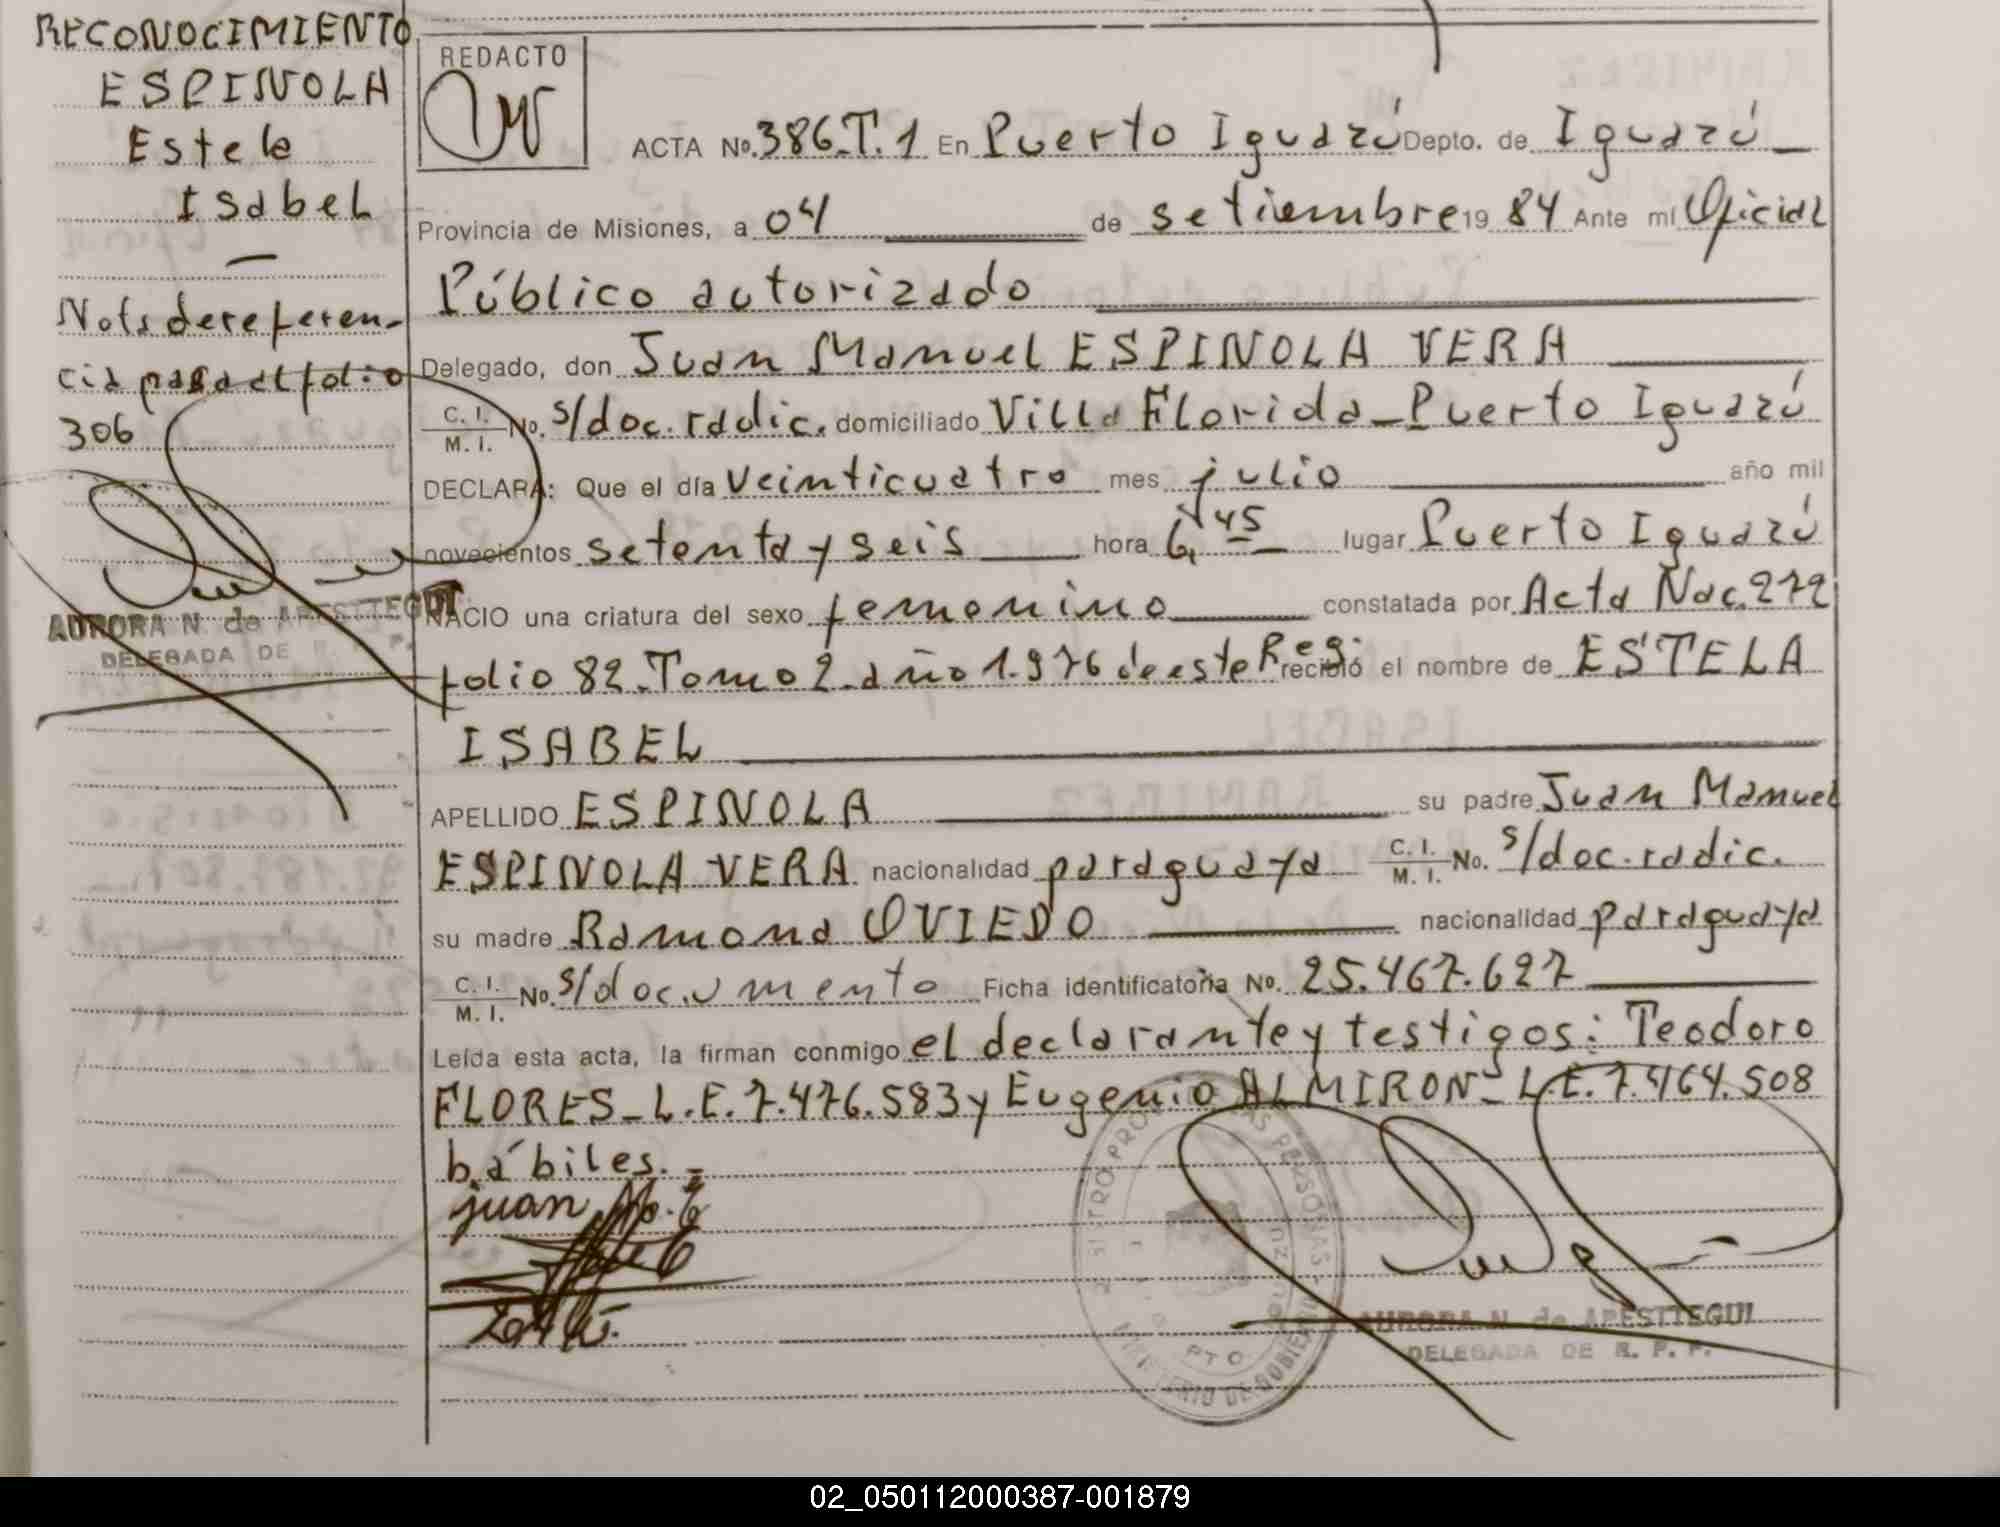 RECONOCIMIENTO
ESPINOLA
Estela
Isabel
Nota de referen-
cia para el folio
306
AURORA N. de APESTTEGUI
DELEGADA DE R. P. P.
REDACTO
ACTA No. 386.T.1 En Puerto Iguazú Depto. de Iguazú
Provincia de Misiones, a 04 de setiembre 19 84 Ante mí Oficial
Público autorizado
Delegado, don Juan Manuel ESPINOLA VERA
C. I. / M. I. No. s/doc. radic. domiciliado Villa Florida - Puerto Iguazú
DECLARA: Que el día veinticuatro mes julio año mil
novecientos setenta y seis hora 6,45 lugar Puerto Iguazú
NACIO una criatura del sexo femenino constatada por Acta Nac. 272
folio 82. Tomo 2. año 1.976 de este Reg: recibió el nombre de ESTELA
ISABEL
APELLIDO ESPINOLA su padre Juan Manuel
ESPINOLA VERA nacionalidad paraguaya C. I. / M. I. No. s/doc. radic.
su madre Ramona OVIEDO nacionalidad paraguaya
C. I. / M. I. No. s/documento Ficha identificatoria No. 25.467.627
Leída esta acta, la firman conmigo el declarante y testigos: Teodoro
FLORES - L.E. 7.476.583 y Eugenio ALMIRON - L.E. 7.464.508
hábiles.
juan
AURORA N. de APESTTEGUI
DELEGADA DE R. P. P.
02_050112000387-001879